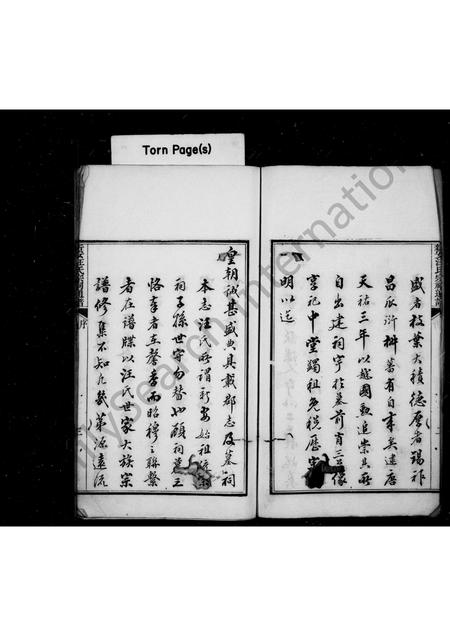 Torn Page(s)
盛者枝葉大積德厚者錫祚
昌源濟 舞著有自來矣逮唐
天祐三年以越國勳追崇其所
自出建祠宇於墓前肖三
享祀中堂蠲租免稅歷宋
明以迄
皇朝誠甚盛典具載郡志及墓祠
本志汪氏所謂新安始祖
祠子孫世守勿替也顧祠
恪奉者在馨香而昭穆之聯繫
者在譜牒以汪氏世家大族宗
譜修集不知凡幾第源遠流
序
MySearch International